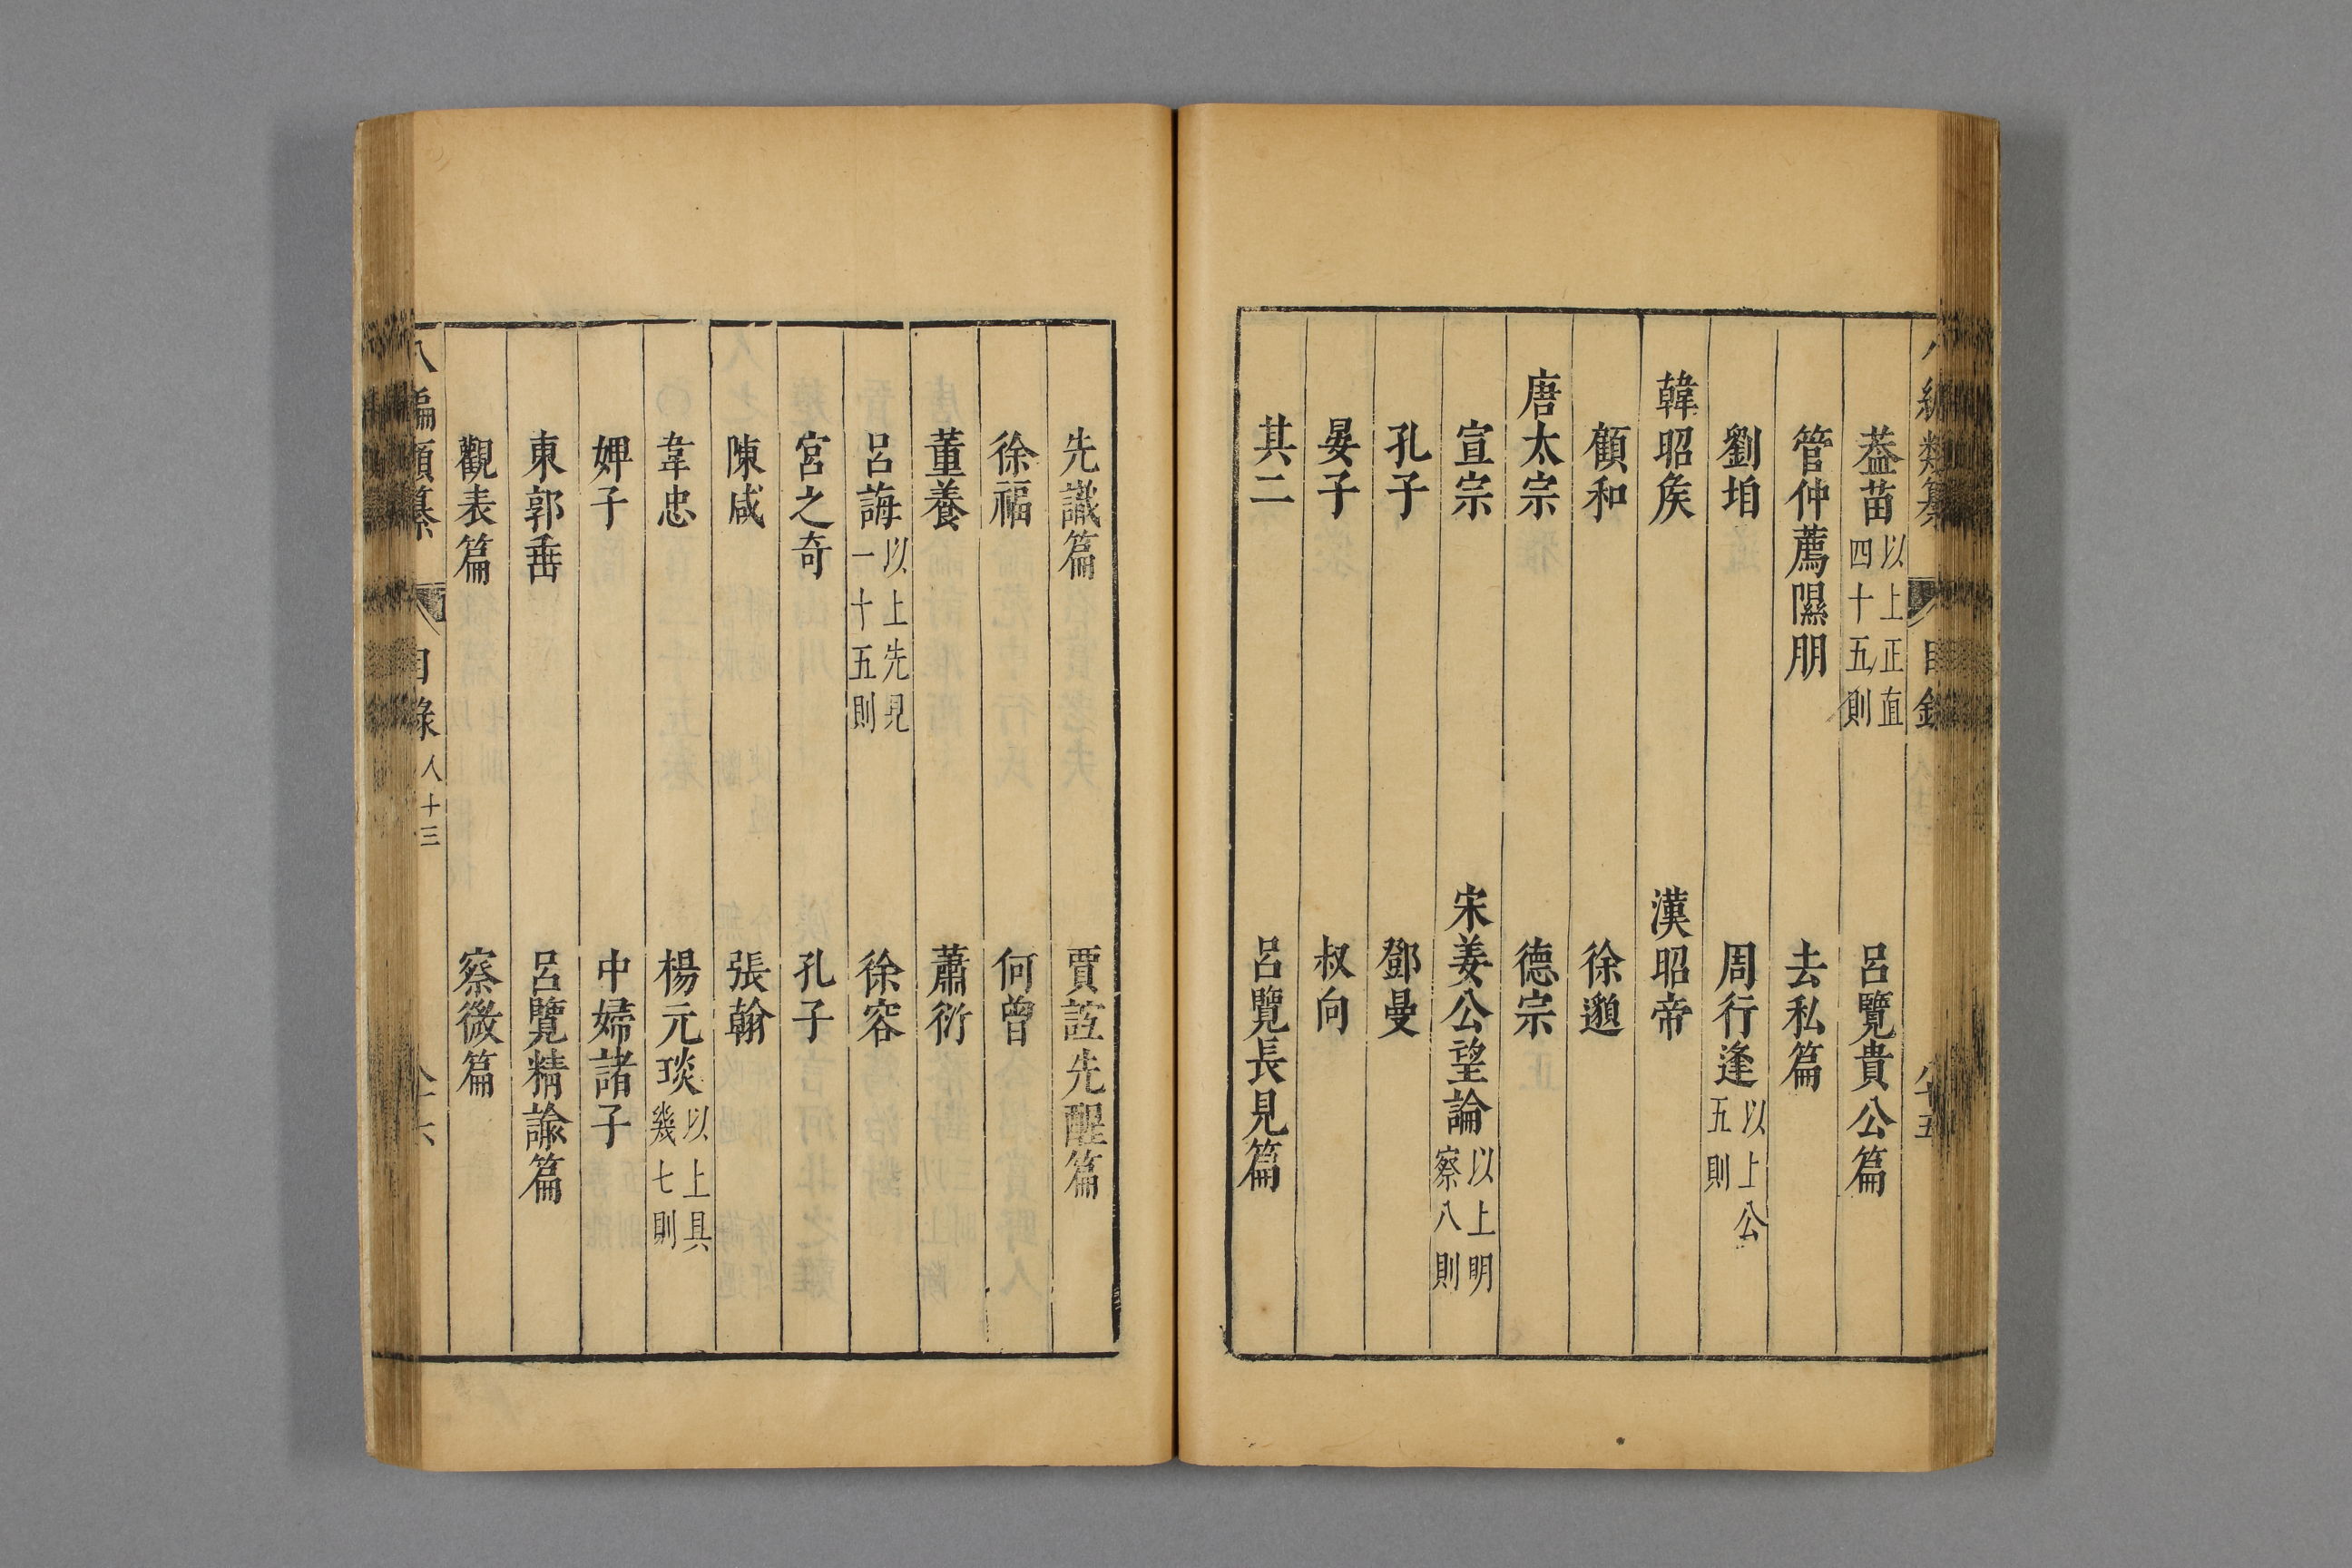 類纂 目錄
葢苗 以上正直四十五則 呂覽貴公篇
管仲薦隰朋 去私篇
劉珀 周行逢 以上公五則
韓昭矦 漢昭帝
顧和 徐邈
唐太宗 德宗
宣宗 宋姜公望論 以上明察八則
孔子 鄧曼
晏子 叔向
其二 呂覽長見篇
先識篇 賈誼先醒篇
徐福 何曾
董養 蕭衍
呂誨 以上先見一十五則 徐容
宮之奇 孔子
陳咸 張翰
韋忠 楊元琰 以上具幾七則
婢子 中婦諸子
東郭垂 呂覽精諭篇
觀表篇 察微篇
八編類纂 目錄 人十三